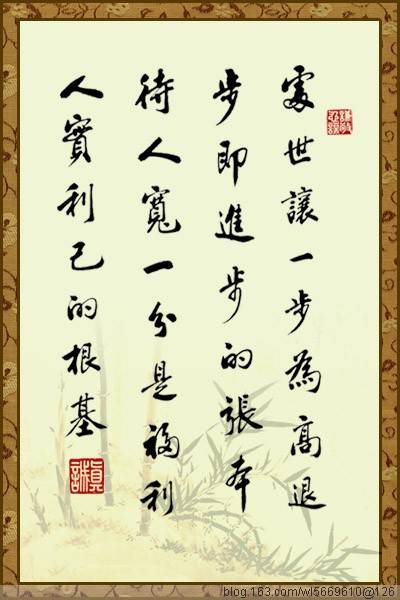 處世讓一步為高退
步即進步的張本
待人寬一分是福利
人實利己的根基
真誠
blog.163.com/wl5669610@126